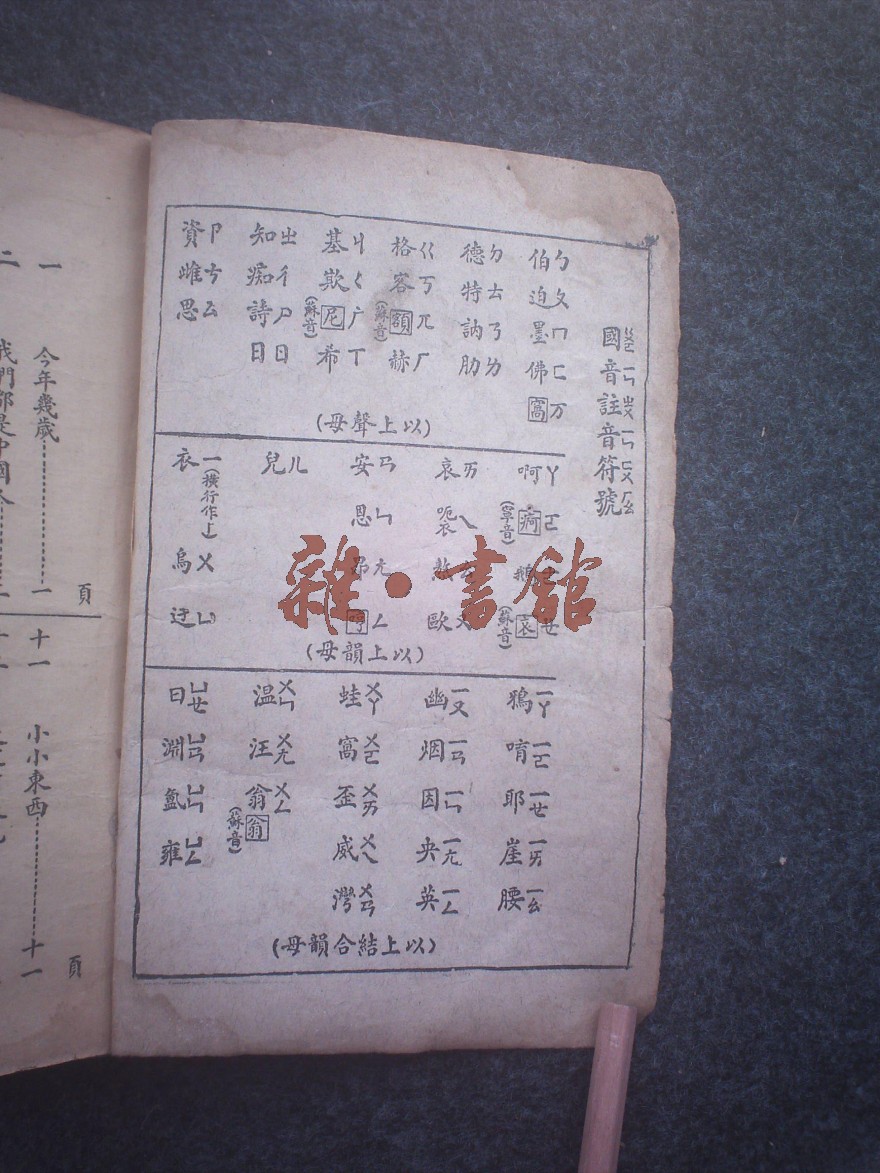 國音註音符號
ㄍㄨㄛ ㄧㄣ ㄓㄨ ㄧㄣ ㄈㄨ ㄏㄠ
伯ㄅ 迫ㄆ 墨ㄇ 佛ㄈ 窩万
德ㄉ 特ㄊ 訥ㄋ 肋ㄌ
格ㄍ 客ㄎ 額兀(蘇音) 赫ㄏ
基ㄐ 欺ㄑ 尼广(蘇音) 希ㄒ
知ㄓ 痴ㄔ 詩ㄕ 日ㄖ
資ㄗ 雌ㄘ 思ㄙ
(以上聲母)
啊ㄚ 痾ㄛ 鵝ㄜ 哀ㄝ(蘇音)
哀ㄞ ㄟ 熬ㄠ 歐ㄡ
安ㄢ 恩ㄣ 昂ㄤ 哼ㄥ
兒ㄦ
衣一(橫行作丨) 烏ㄨ 迂ㄩ
(以上韻母)
鴉ㄧㄚ 唷ㄧㄛ 耶ㄧㄝ 崖ㄧㄞ 腰ㄧㄠ
幽ㄧㄡ 烟ㄧㄢ 因ㄧㄣ 央ㄧㄤ 英ㄧㄥ
蛙ㄨㄚ 窩ㄨㄛ 歪ㄨㄞ 威ㄨㄟ 灣ㄨㄢ
溫ㄨㄣ 汪ㄨㄤ 翁ㄨㄥ 翁(蘇音)
曰ㄩㄝ 淵ㄩㄢ 氳ㄩㄣ 雍ㄩㄥ
(以上結合韻母)
頁
一 今年幾歲 一
二 我們都是中國
頁
十一 小小東西 十一
雜·書館